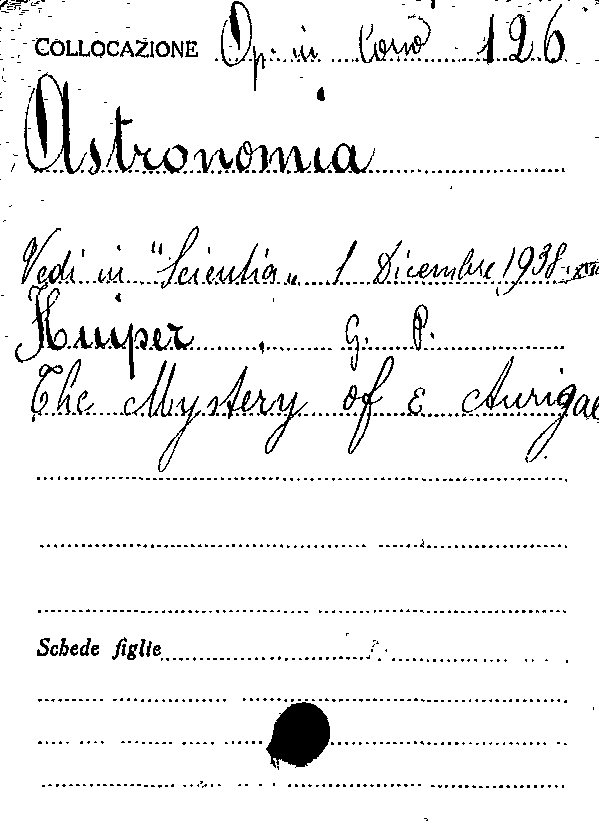 COLLOCAZIONE Op. in Corso 126
Astronomia
Vedi in "Scientia" 1 Dicembre 1938-XVII
Kuiper, G. P.
The Mystery of ε Aurigae
Schede figlie